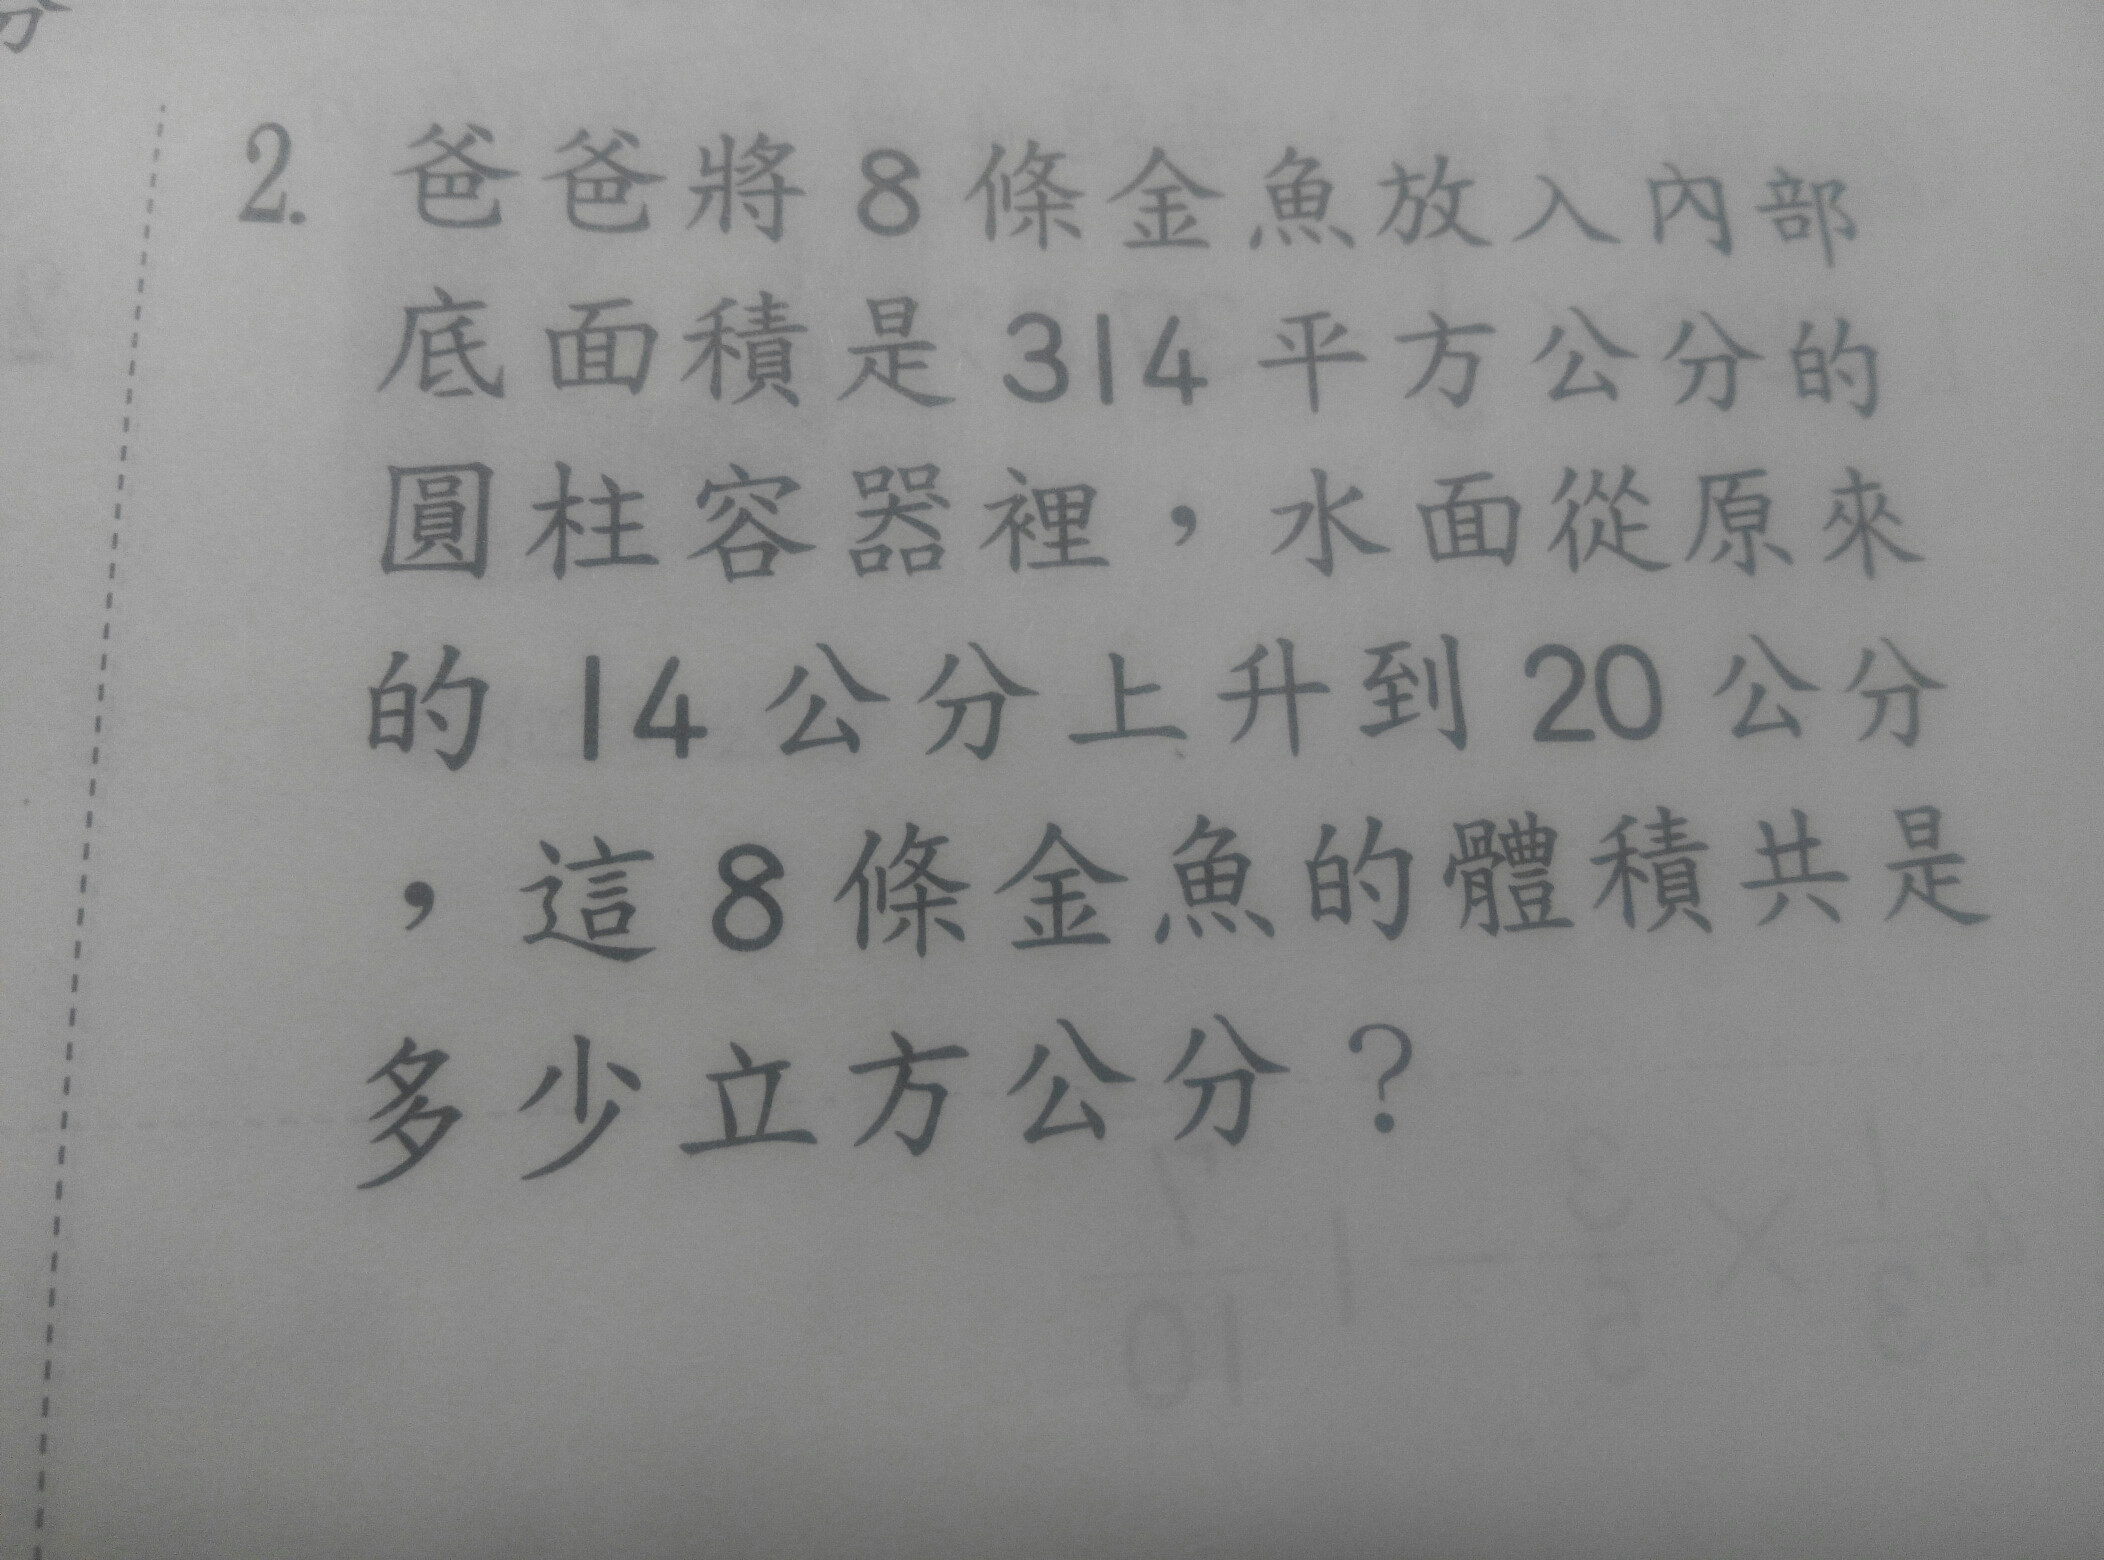 分
2. 爸爸將8條金魚放入內部
底面積是314平方公分的
圓柱容器裡，水面從原來
的14公分上升到20公分
，這8條金魚的體積共是
多少立方公分？